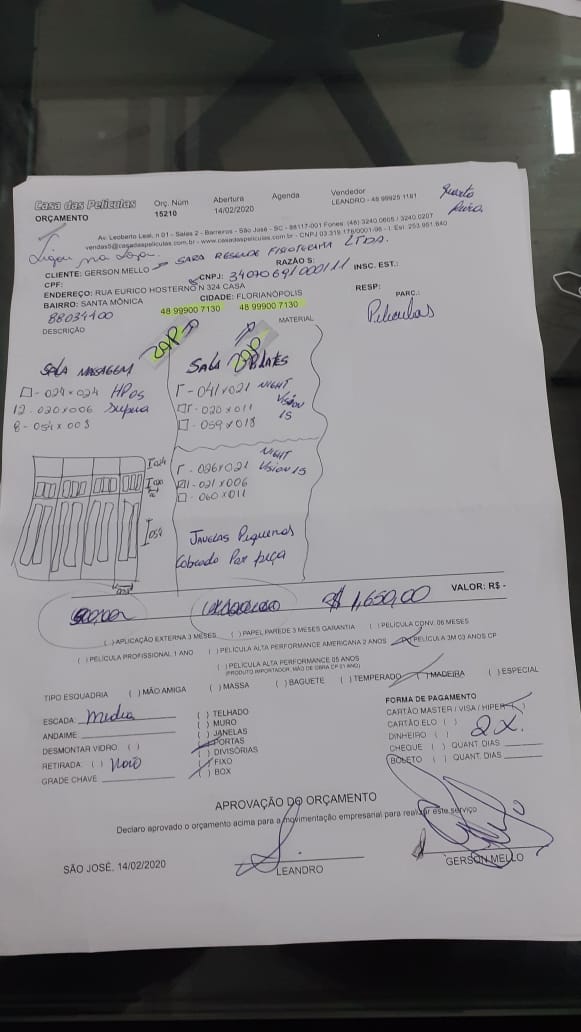 Casa das Películas
Orç. Num
Abertura
Agenda
Vendedor
ORÇAMENTO
15210
14/02/2020
LEANDRO - 48 99925 1181
Av. Leoberto Leal, n 01 - Salas 2 - Barreiros - São José - SC - 88117-001 Fones: (48) 3240.0605 / 3240.0207
CLIENTE: GERSON MELLO
SARA RESENDE FISIOTERAPIA LTDA.
RAZÃO S:
CPF:
CNPJ:
INSC. EST.:
ENDEREÇO: RUA EURICO HOSTERNO N 324 CASA
RESP:
BAIRRO: SANTA MÔNICA
CIDADE: FLORIANÓPOLIS
PARC.:
48 99900 7130
48 99900 7130
Películas
DESCRIÇÃO
MATERIAL
ZAP
ZAP
SALA MASSAGEM
SALA PILATES
024x024
041x021 NIGHT
12-020x006
020x011 Vision
15
8-054x003
059x018
NIGHT
026x021 Vision 15
021x006
060x011
024
020
054
JANELAS PEQUENAS
Cobrado Por peça
R$ 1,650,00
VALOR: R$ -
( ) APLICAÇÃO EXTERNA 3 MESES ( ) PAPEL PAREDE 3 MESES GARANTIA ( ) PELÍCULA CONV. 06 MESES
( ) PELÍCULA PROFISSIONAL 1 ANO ( ) PELÍCULA ALTA PERFORMANCE AMERICANA 2 ANOS PELÍCULA 3M 03 ANOS CP
( ) PELÍCULA ALTA PERFORMANCE 05 ANOS
(PRODUTO IMPORTADOR, MÃO DE OBRA CP 01 ANO)
TIPO ESQUADRIA ( ) MÃO AMIGA ( ) MASSA ( ) BAGUETE ( ) TEMPERADO ( ) MADEIRA ( ) ESPECIAL
ESCADA media
( ) TELHADO
FORMA DE PAGAMENTO
ANDAIME
( ) MURO
CARTÃO MASTER / VISA / HIPER ( )
( ) JANELAS
CARTÃO ELO ( )
2x.
DESMONTAR VIDRO ( )
( ) PORTAS
DINHEIRO ( )
( ) DIVISÓRIAS
CHEQUE ( ) QUANT. DIAS
RETIRADA ( ) Novo
( ) FIXO
BOLETO ( ) QUANT. DIAS
GRADE CHAVE
( ) BOX
APROVAÇÃO DO ORÇAMENTO
Declaro aprovado o orçamento acima para a movimentação empresarial para realizar este serviço
SÃO JOSÉ, 14/02/2020
LEANDRO
GERSON MELLO